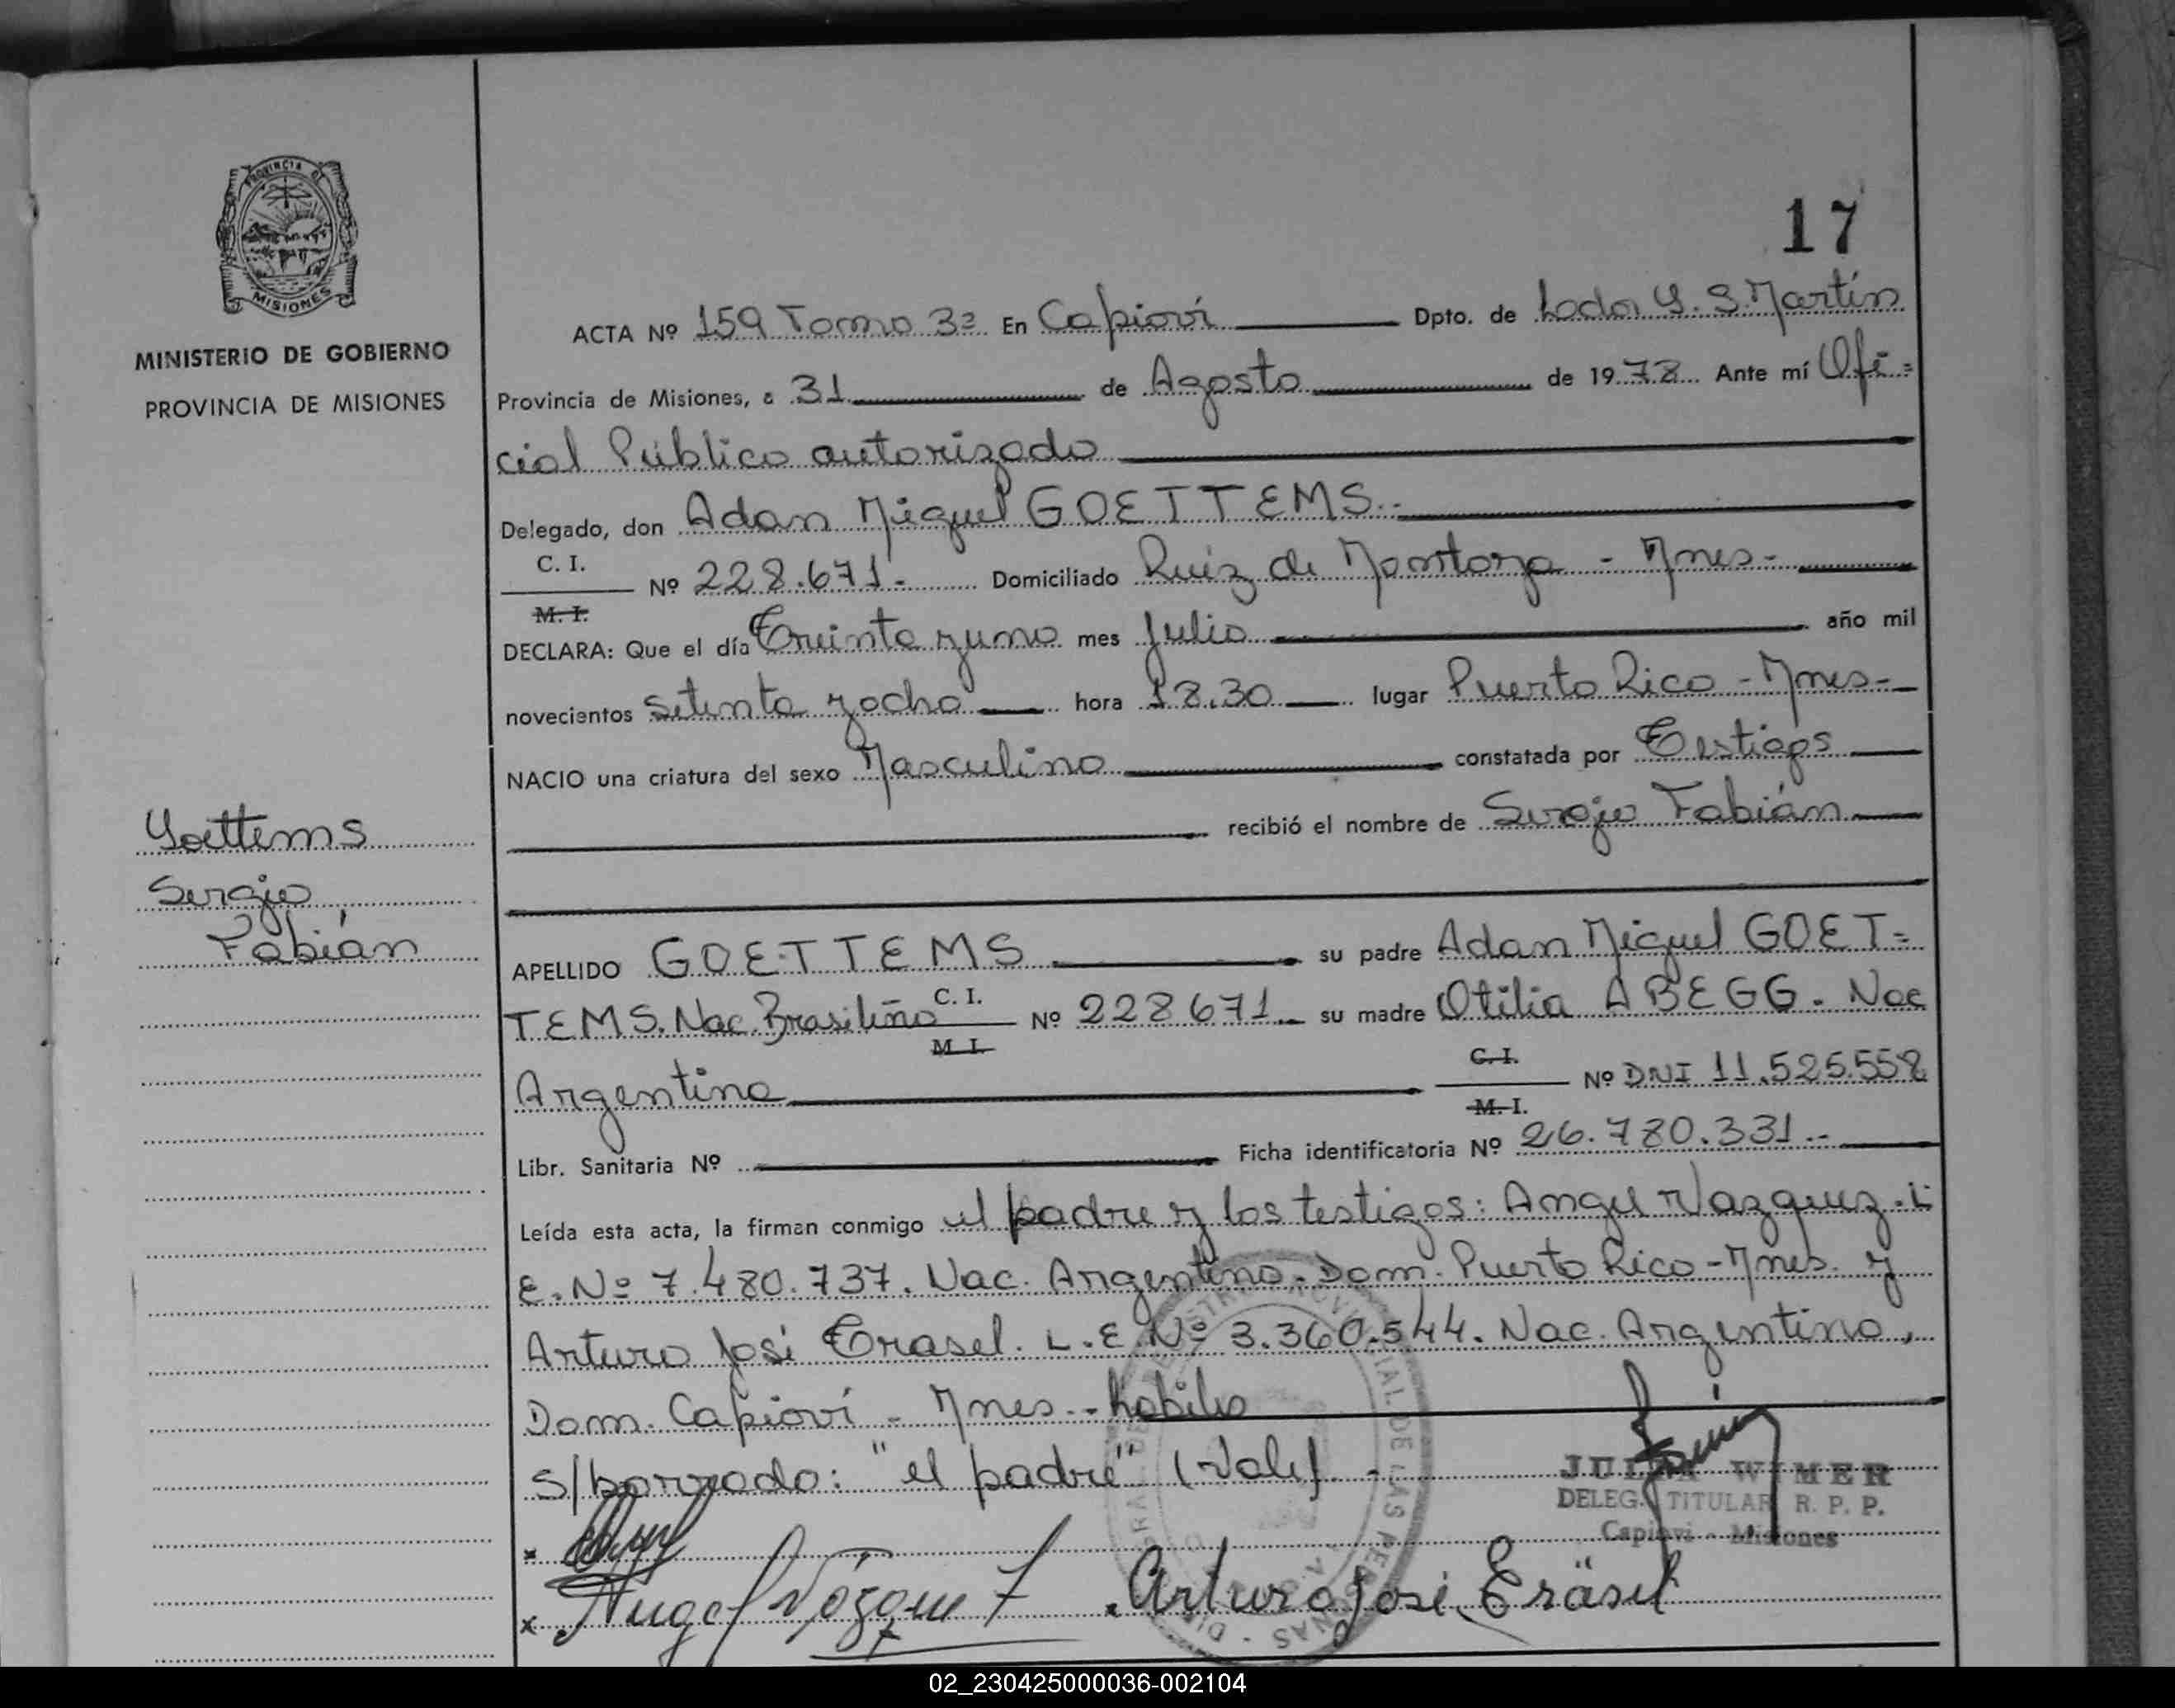 17
PROVINCIA DE
MISIONES
MINISTERIO DE GOBIERNO
PROVINCIA DE MISIONES
ACTA Nº 159 Tomo 3º En Capioví Dpto. de Lodor G. S. Martín
Provincia de Misiones, a 31 de Agosto de 1978 Ante mí Ofi=
cial Público autorizado
Delegado, don Adan Miguel GOETTEMS.-
C. I.
M. I.
Nº 228.671.- Domiciliado Ruiz de Montoya - Mnes-
DECLARA: Que el día Treinta y uno mes Julio año mil
novecientos setenta y ocho hora 18.30 lugar Puerto Rico - Mnes-
NACIO una criatura del sexo Masculino constatada por Testigos
recibió el nombre de Sergio Fabián
Goettems
Sergio
Fabián
APELLIDO GOETTEMS su padre Adan Miguel GOET=
TEMS. Nac. Brasileño C. I. Nº 228671.- su madre Otilia ABEGG. Nac
M. I.
Argentina C. I. Nº DNI 11.525.558
M. I.
Libr. Sanitaria Nº Ficha identificatoria Nº 26.780.331.-
Leída esta acta, la firman conmigo el padre y los testigos: Angel Vazquez. L
E. Nº 7.480.737. Nac. Argentino. Dom. Puerto Rico - Mnes. y
Arturo José Erasel. L.E. Nº 3.360.544. Nac. Argentino,
Dom. Capioví - Mnes. - habiles
s/borrado: "el padre" (Vale) -
WIMER
DELEG. TITULAR R. P. P.
Capiovi - Misiones
Angel Vázquez
Arturo José Eräsel
02_230425000036-002104